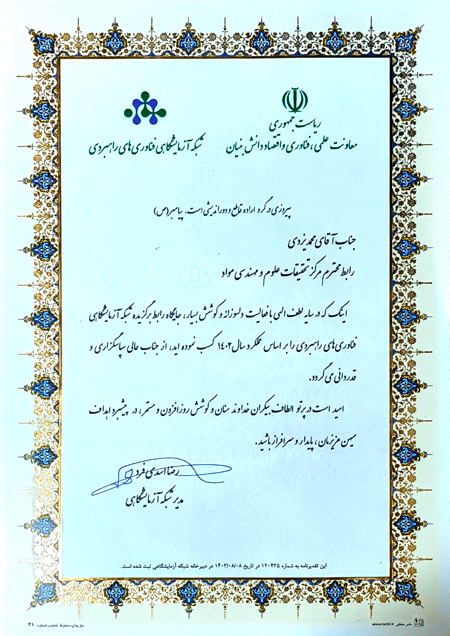 ریاست جمهوری
معاونت علمی، فناوری و اقتصاد دانش بنیان
شبکه آزمایشگاهی فناوری‌های راهبردی
پیروزی در گرو اراده قاطع و دوراندیشی است. پیامبر(ص)
جناب آقای محمد یزدی
رابط محترم مرکز تحقیقات علوم و مهندسی مواد
اینک که در سایه لطف الهی با فعالیت دلسوزانه و کوشش بسیار، جایگاه رابط برگزیده شبکه آزمایشگاهی
فناوری‌های راهبردی را بر اساس عملکرد سال ۱۴۰۲ کسب نموده اید، از جناب عالی سپاسگزاری و
قدردانی می گردد.
امید است در پرتو الطاف بیکران خداوند منان و کوشش روزافزون و مستمر، در پیشبرد اهداف
میهن عزیزمان، پایدار و سرافراز باشید.
رضا اسدی فرد
مدیر شبکه آزمایشگاهی
این تقدیرنامه به شماره ۱۲۰۴۳۵ در تاریخ ۱۴۰۳/۰۸/۰۸ در دبیرخانه شبکه آزمایشگاهی ثبت شده است.